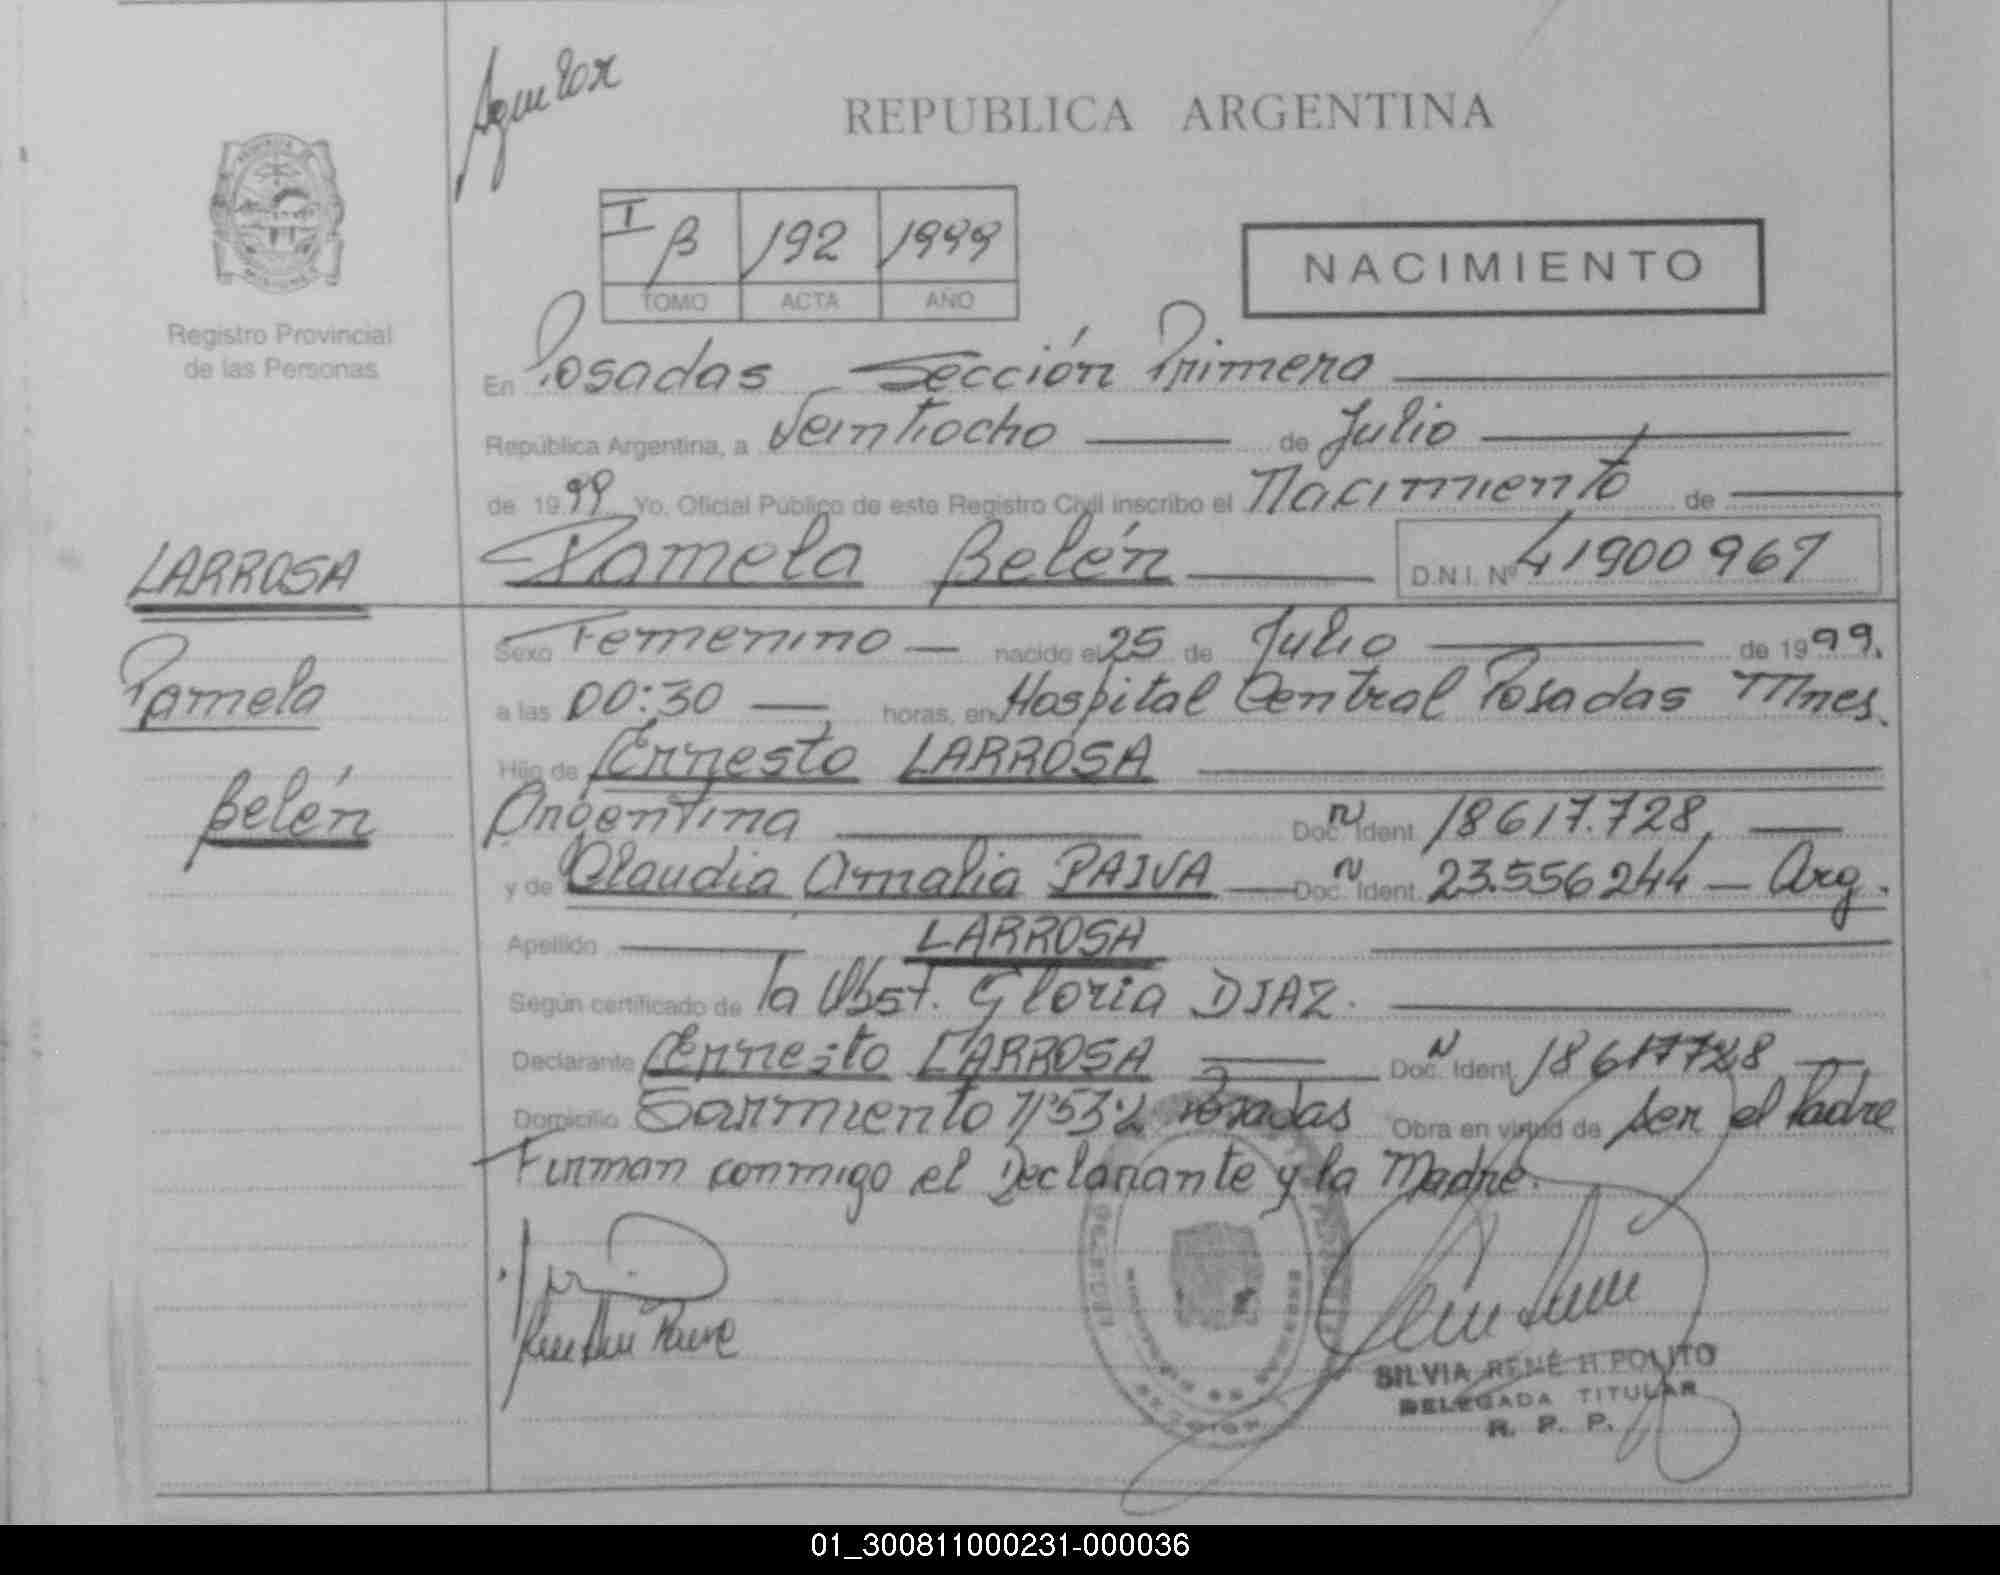 Aguilar
REPUBLICA ARGENTINA
I B 192 1999
TOMO ACTA AÑO
NACIMIENTO
Registro Provincial
de las Personas
En Posadas Sección Primera
República Argentina, a Veintiocho de Julio
de 1999 Yo, Oficial Público de este Registro Civil inscribo el Nacimiento de
LARROSA
Pamela Belén D.N.I. Nº 41900967
Pamela
Belén
Sexo Femenino nacido el 25 de Julio de 1999.
a las 00:30 horas, en Hospital Central Posadas Mnes.
Hijo de Ernesto LARROSA
Argentina Doc. Ident. 18617.728,
y de Claudia Amalia PAIVA Doc. Ident. 23.556244 Arg.
Apellido LARROSA
Según certificado de la Obst. Gloria DIAZ.
Declarante Ernesto LARROSA Doc. Ident. 18617728
Domicilio Sarmiento Nº532 Posadas Obra en virtud de ser el Padre
Firman conmigo el Declarante y la Madre.
SILVIA RENÉ HIPOLITO
DELEGADA TITULAR
R. P. P.
01_300811000231-000036